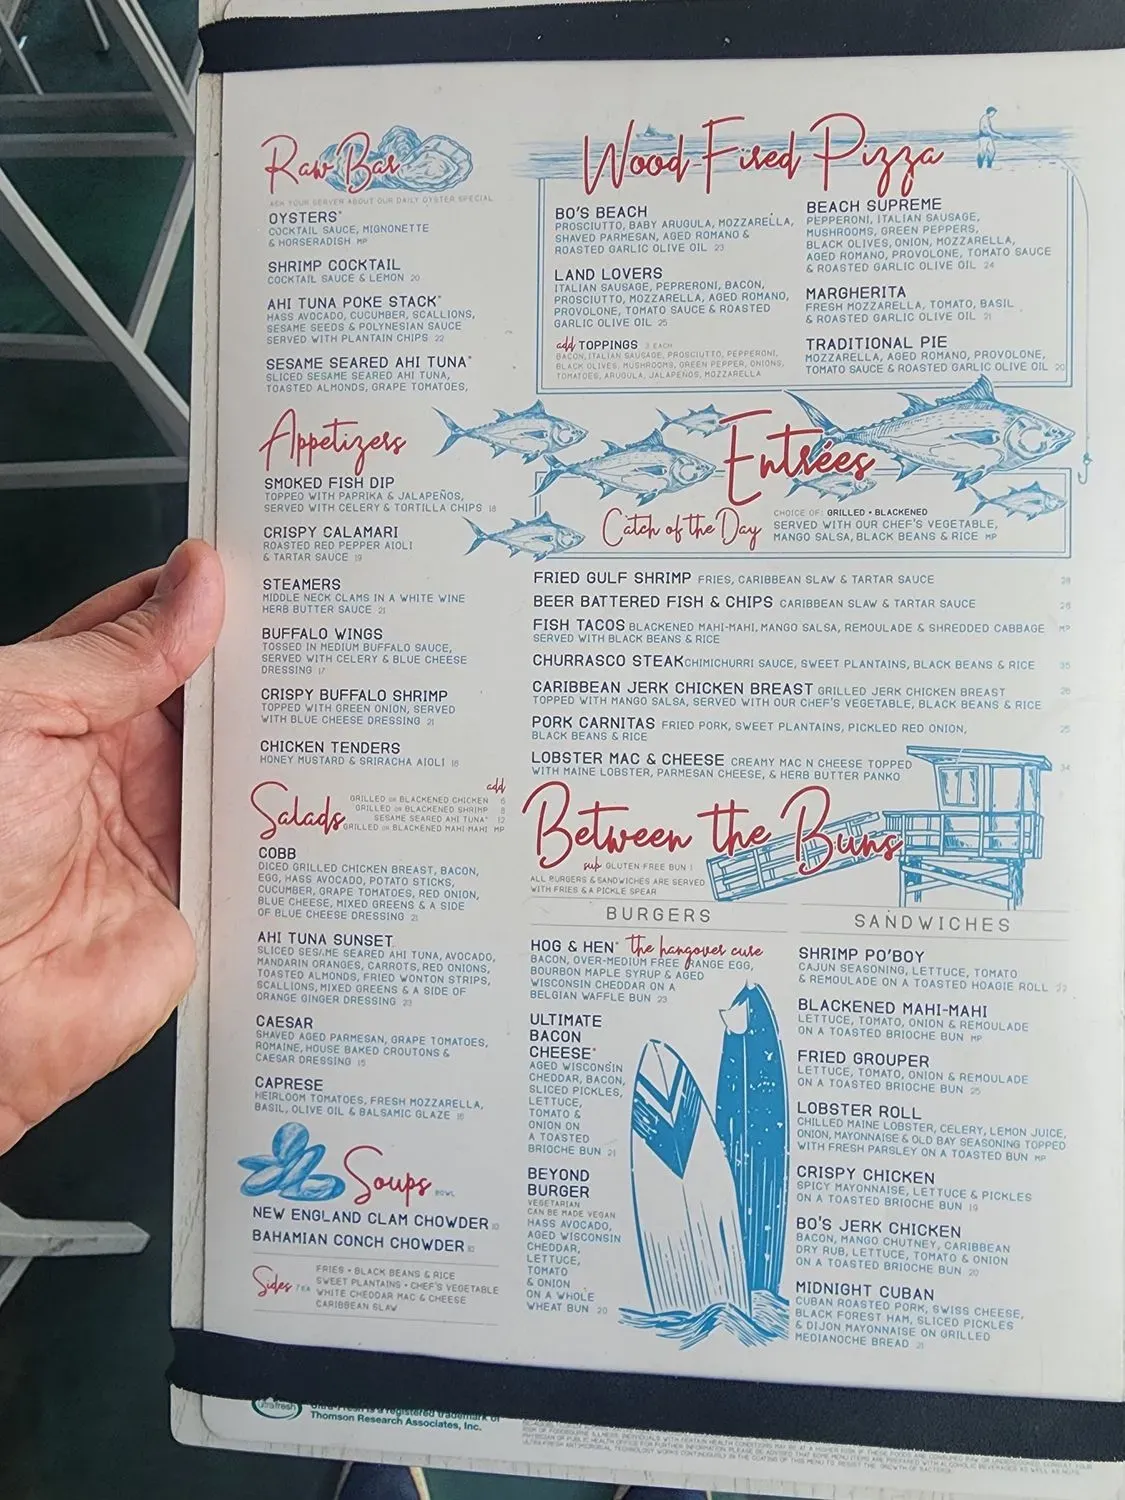 Raw Bar
ASK YOUR SERVER ABOUT OUR DAILY OYSTER SPECIAL
OYSTERS*
COCKTAIL SAUCE, MIGNONETTE
& HORSERADISH MP
SHRIMP COCKTAIL
COCKTAIL SAUCE & LEMON 20
AHI TUNA POKE STACK*
HASS AVOCADO, CUCUMBER, SCALLIONS,
SESAME SEEDS & POLYNESIAN SAUCE
SERVED WITH PLANTAIN CHIPS 22
SESAME SEARED AHI TUNA*
SLICED SESAME SEARED AHI TUNA,
TOASTED ALMONDS, GRAPE TOMATOES,
Appetizers
SMOKED FISH DIP
TOPPED WITH PAPRIKA & JALAPEÑOS,
SERVED WITH CELERY & TORTILLA CHIPS 18
CRISPY CALAMARI
ROASTED RED PEPPER AIOLI
& TARTAR SAUCE 19
STEAMERS
MIDDLE NECK CLAMS IN A WHITE WINE
HERB BUTTER SAUCE 21
BUFFALO WINGS
TOSSED IN MEDIUM BUFFALO SAUCE,
SERVED WITH CELERY & BLUE CHEESE
DRESSING 17
CRISPY BUFFALO SHRIMP
TOPPED WITH GREEN ONION, SERVED
WITH BLUE CHEESE DRESSING 21
CHICKEN TENDERS
HONEY MUSTARD & SRIRACHA AIOLI
Salads
add
GRILLED OR BLACKENED CHICKEN 6
GRILLED OR BLACKENED SHRIMP 8
SESAME SEARED AHI TUNA* 12
GRILLED OR BLACKENED MAHI-MAHI MP
COBB
DICED GRILLED CHICKEN BREAST, BACON,
EGG, HASS AVOCADO, POTATO STICKS,
CUCUMBER, GRAPE TOMATOES, RED ONION,
BLUE CHEESE, MIXED GREENS & A SIDE
OF BLUE CHEESE DRESSING 21
AHI TUNA SUNSET
SLICED SESAME SEARED AHI TUNA, AVOCADO,
MANDARIN ORANGES, CARROTS, RED ONIONS,
TOASTED ALMONDS, FRIED WONTON STRIPS,
SCALLIONS, MIXED GREENS & A SIDE OF
ORANGE GINGER DRESSING 23
CAESAR
SHAVED AGED PARMESAN, GRAPE TOMATOES,
ROMAINE, HOUSE BAKED CROUTONS &
CAESAR DRESSING 15
CAPRESE
HEIRLOOM TOMATOES, FRESH MOZZARELLA,
BASIL, OLIVE OIL & BALSAMIC GLAZE 16
Soups BOWL
NEW ENGLAND CLAM CHOWDER 10
BAHAMIAN CONCH CHOWDER 10
Sides 7 EA
FRIES • BLACK BEANS & RICE
SWEET PLANTAINS • CHEF'S VEGETABLE
WHITE CHEDDAR MAC & CHEESE
CARIBBEAN SLAW
Wood Fired Pizza
BO'S BEACH
PROSCIUTTO, BABY ARUGULA, MOZZARELLA,
SHAVED PARMESAN, AGED ROMANO &
ROASTED GARLIC OLIVE OIL 23
LAND LOVERS
ITALIAN SAUSAGE, PEPPERONI, BACON,
PROSCIUTTO, MOZZARELLA, AGED ROMANO,
PROVOLONE, TOMATO SAUCE & ROASTED
GARLIC OLIVE OIL 25
add TOPPINGS 3 EACH
BACON, ITALIAN SAUSAGE, PROSCIUTTO, PEPPERONI,
BLACK OLIVES, MUSHROOMS, GREEN PEPPER, ONIONS,
TOMATOES, ARUGULA, JALAPEÑOS, MOZZARELLA
BEACH SUPREME
PEPPERONI, ITALIAN SAUSAGE,
MUSHROOMS, GREEN PEPPERS,
BLACK OLIVES, ONION, MOZZARELLA,
AGED ROMANO, PROVOLONE, TOMATO SAUCE
& ROASTED GARLIC OLIVE OIL 24
MARGHERITA
FRESH MOZZARELLA, TOMATO, BASIL
& ROASTED GARLIC OLIVE OIL 21
TRADITIONAL PIE
MOZZARELLA, AGED ROMANO, PROVOLONE,
TOMATO SAUCE & ROASTED GARLIC OLIVE OIL 20
Entrées
Catch of the Day
CHOICE OF: GRILLED • BLACKENED
SERVED WITH OUR CHEF'S VEGETABLE,
MANGO SALSA, BLACK BEANS & RICE MP
FRIED GULF SHRIMP FRIES, CARIBBEAN SLAW & TARTAR SAUCE
BEER BATTERED FISH & CHIPS CARIBBEAN SLAW & TARTAR SAUCE
FISH TACOS BLACKENED MAHI-MAHI, MANGO SALSA, REMOULADE & SHREDDED CABBAGE MP
SERVED WITH BLACK BEANS & RICE
CHURRASCO STEAK CHIMICHURRI SAUCE, SWEET PLANTAINS, BLACK BEANS & RICE 35
CARIBBEAN JERK CHICKEN BREAST GRILLED JERK CHICKEN BREAST
TOPPED WITH MANGO SALSA, SERVED WITH OUR CHEF'S VEGETABLE, BLACK BEANS & RICE
PORK CARNITAS FRIED PORK, SWEET PLANTAINS, PICKLED RED ONION, 25
BLACK BEANS & RICE
LOBSTER MAC & CHEESE CREAMY MAC N CHEESE TOPPED
WITH MAINE LOBSTER, PARMESAN CHEESE, & HERB BUTTER PANKO 34
Between the Buns
sub GLUTEN-FREE BUN 1
ALL BURGERS & SANDWICHES ARE SERVED
WITH FRIES & A PICKLE SPEAR
BURGERS
HOG & HEN* the hangover cure
BACON, OVER-MEDIUM FREE RANGE EGG,
BOURBON MAPLE SYRUP & AGED
WISCONSIN CHEDDAR ON A
BELGIAN WAFFLE BUN 23
ULTIMATE
BACON
CHEESE*
AGED WISCONSIN
CHEDDAR, BACON,
SLICED PICKLES,
LETTUCE,
TOMATO &
ONION ON
A TOASTED
BRIOCHE BUN 21
BEYOND
BURGER
VEGETARIAN
CAN BE MADE VEGAN
HASS AVOCADO,
AGED WISCONSIN
CHEDDAR,
LETTUCE,
TOMATO
& ONION
ON A WHOLE
WHEAT BUN 20
SANDWICHES
SHRIMP PO'BOY
CAJUN SEASONING, LETTUCE, TOMATO
& REMOULADE ON A TOASTED HOAGIE ROLL
BLACKENED MAHI-MAHI
LETTUCE, TOMATO, ONION & REMOULADE
ON A TOASTED BRIOCHE BUN MP
FRIED GROUPER
LETTUCE, TOMATO, ONION & REMOULADE
ON A TOASTED BRIOCHE BUN 25
LOBSTER ROLL
CHILLED MAINE LOBSTER, CELERY, LEMON JUICE,
ONION, MAYONNAISE & OLD BAY SEASONING TOPPED
WITH FRESH PARSLEY ON A TOASTED BUN MP
CRISPY CHICKEN
SPICY MAYONNAISE, LETTUCE & PICKLES
ON A TOASTED BRIOCHE BUN 19
BO'S JERK CHICKEN
BACON, MANGO CHUTNEY, CARIBBEAN
DRY RUB, LETTUCE, TOMATO & ONION
ON A TOASTED BRIOCHE BUN 20
MIDNIGHT CUBAN
CUBAN ROASTED PORK, SWISS CHEESE,
BLACK FOREST HAM, SLICED PICKLES
& DIJON MAYONNAISE ON GRILLED
MEDIANOCHE BREAD 21
ultrafresh
Ultra-Fresh is a registered trademark of
Thomson Research Associates, Inc.